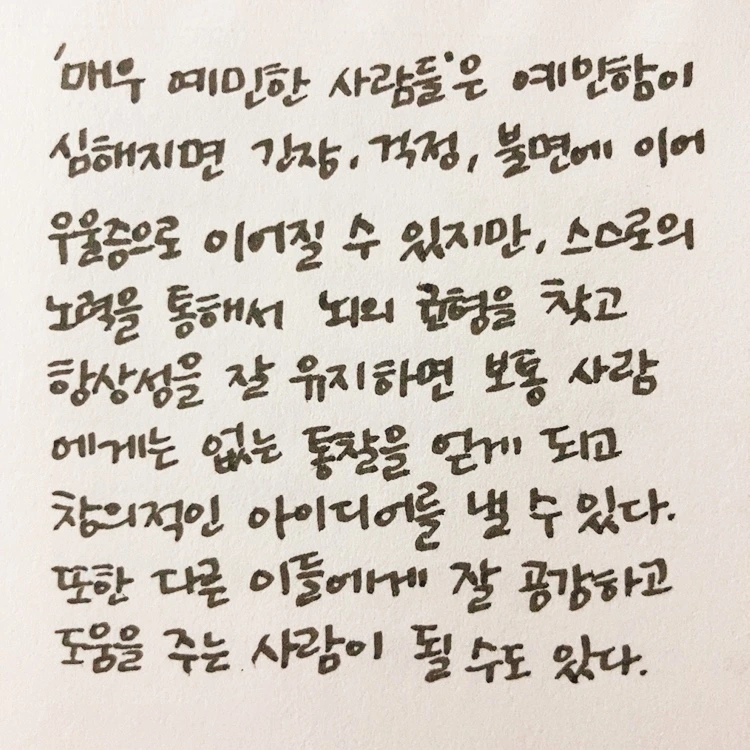 '매우 예민한 사람들'은 예민함이
심해지면 긴장, 걱정, 불면에 이어
우울증으로 이어질 수 있지만, 스스로의
노력을 통해서 뇌의 균형을 찾고
항상성을 잘 유지하면 보통 사람
에게는 없는 통찰을 얻게 되고
창의적인 아이디어를 낼 수 있다.
또한 다른 이들에게 잘 공감하고
도움을 주는 사람이 될 수도 있다.